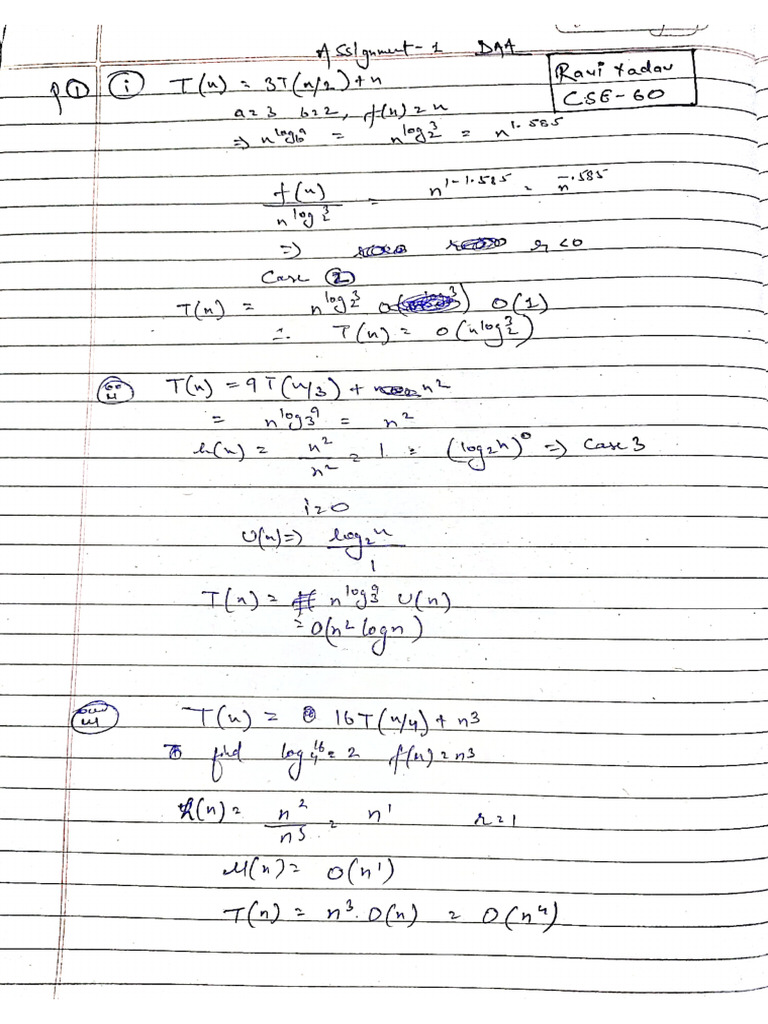 Assignment-1 DAA
Ravi Yadav
CSE-60
Q① ⓘ T(n) = 3T(n/2)+n
a=3 b=2, f(n)=n
⇒ n^log_b^a = n^log_2^3 = n^1.585
f(n)/n^log_2^3 = n^1-1.585 = n^-.585
⇒ r<0
Case ②
T(n) = n^log_2^3 O(1)
∴ T(n) = O(n^log_2^3)
ii T(n) = 9T(n/3) + n²
= n^log_3^9 = n²
h(n) = n²/n² = 1 = (log₂n)⁰ ⇒ Case 3
i=0
U(n)⇒ log₂n/1
T(n) = n^log_3^9 U(n)
= O(n² logn)
iii T(n) = 16T(n/4) + n3
find log_4^16 = 2 f(n)=n3
h(n) = n²/n3 = n' r=1
U(n) = O(n')
T(n) = n³. O(n) = O(n⁴)